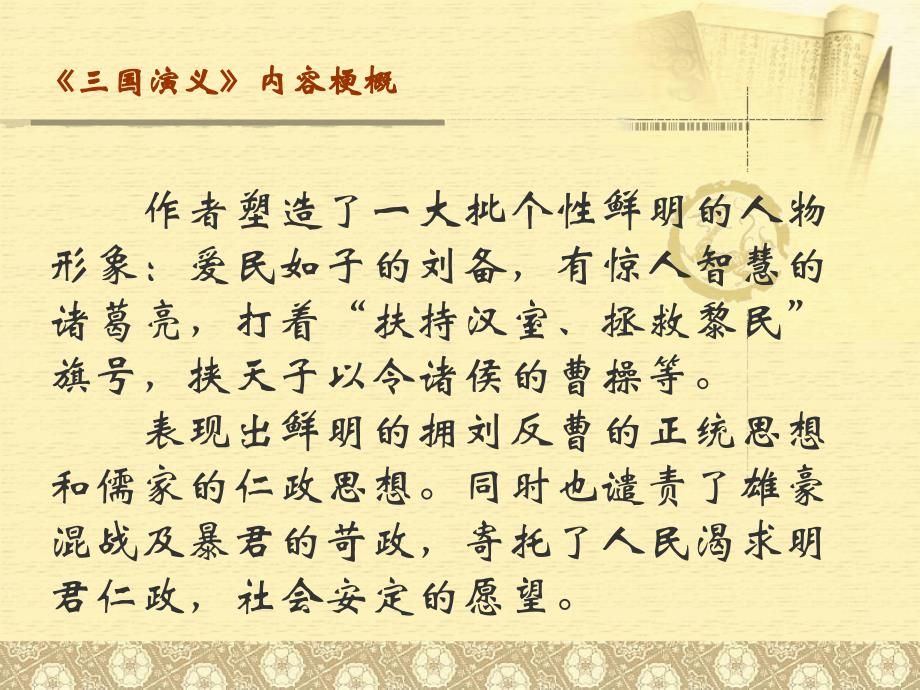 《三国演义》内容梗概
作者塑造了一大批个性鲜明的人物
形象：爱民如子的刘备，有惊人智慧的
诸葛亮，打着“扶持汉室、拯救黎民”
旗号，挟天子以令诸侯的曹操等。
表现出鲜明的拥刘反曹的正统思想
和儒家的仁政思想。同时也谴责了雄豪
混战及暴君的苛政，寄托了人民渴求明
君仁政，社会安定的愿望。